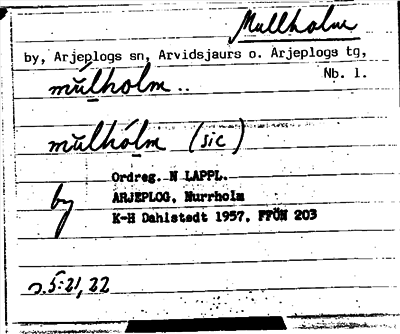 Mullholm
by, Arjeplogs sn, Arvidsjaurs o. Arjeplogs tg,
Nb. l.
mu̇lholm..
mulhólm (sic)
Ordreg. N LAPPL.
by
ARJEPLOG, Nurrholm
K-H Dahlstedt 1957, FFÖN 203
s. 5:21, 22